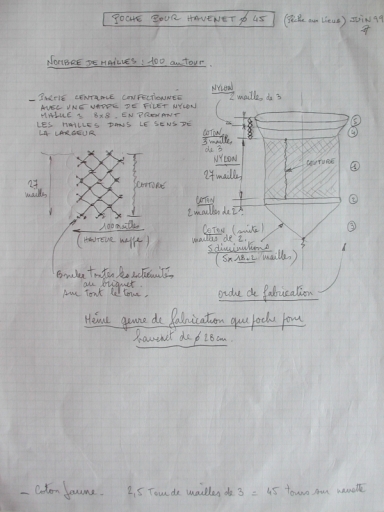 POCHE POUR HAVENET ø 45 (Pêche au lieu) JUIN 99
NOMBRE DE MAILLES : 100 autour.
- PARTIE CENTRALE CONFECTIONNÉE
AVEC UNE NAPPE DE FILET NYLON
MAILLES 8x8, EN PRENANT
LES MAILLES DANS LE SENS DE
LA LARGEUR
27
mailles
COUTURE
100 mailles
(HAUTEUR nappe)
Brûler toutes les extrémités
au briquet
sur tout le tour.
NYLON
2 mailles de 3
COTON
3 mailles
de 3
NYLON
27 mailles
COUTURE
COTON
2 mailles de 2
COTON (suite)
mailles de 2.
5 diminutions
mailles)
ordre de fabrication
Même genre de fabrication que poche pour
havenet de ø 28 cm.
- Coton Jaune - 2,5 Tour de mailles de 3 = 45 tours sur navette